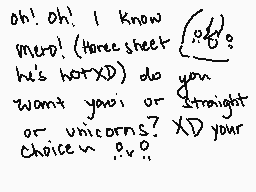 oh! oh! I know
mero! (Horee sheet
he's hotXD) do you
want yaoi or straight
or unicorns? XD your
choice n